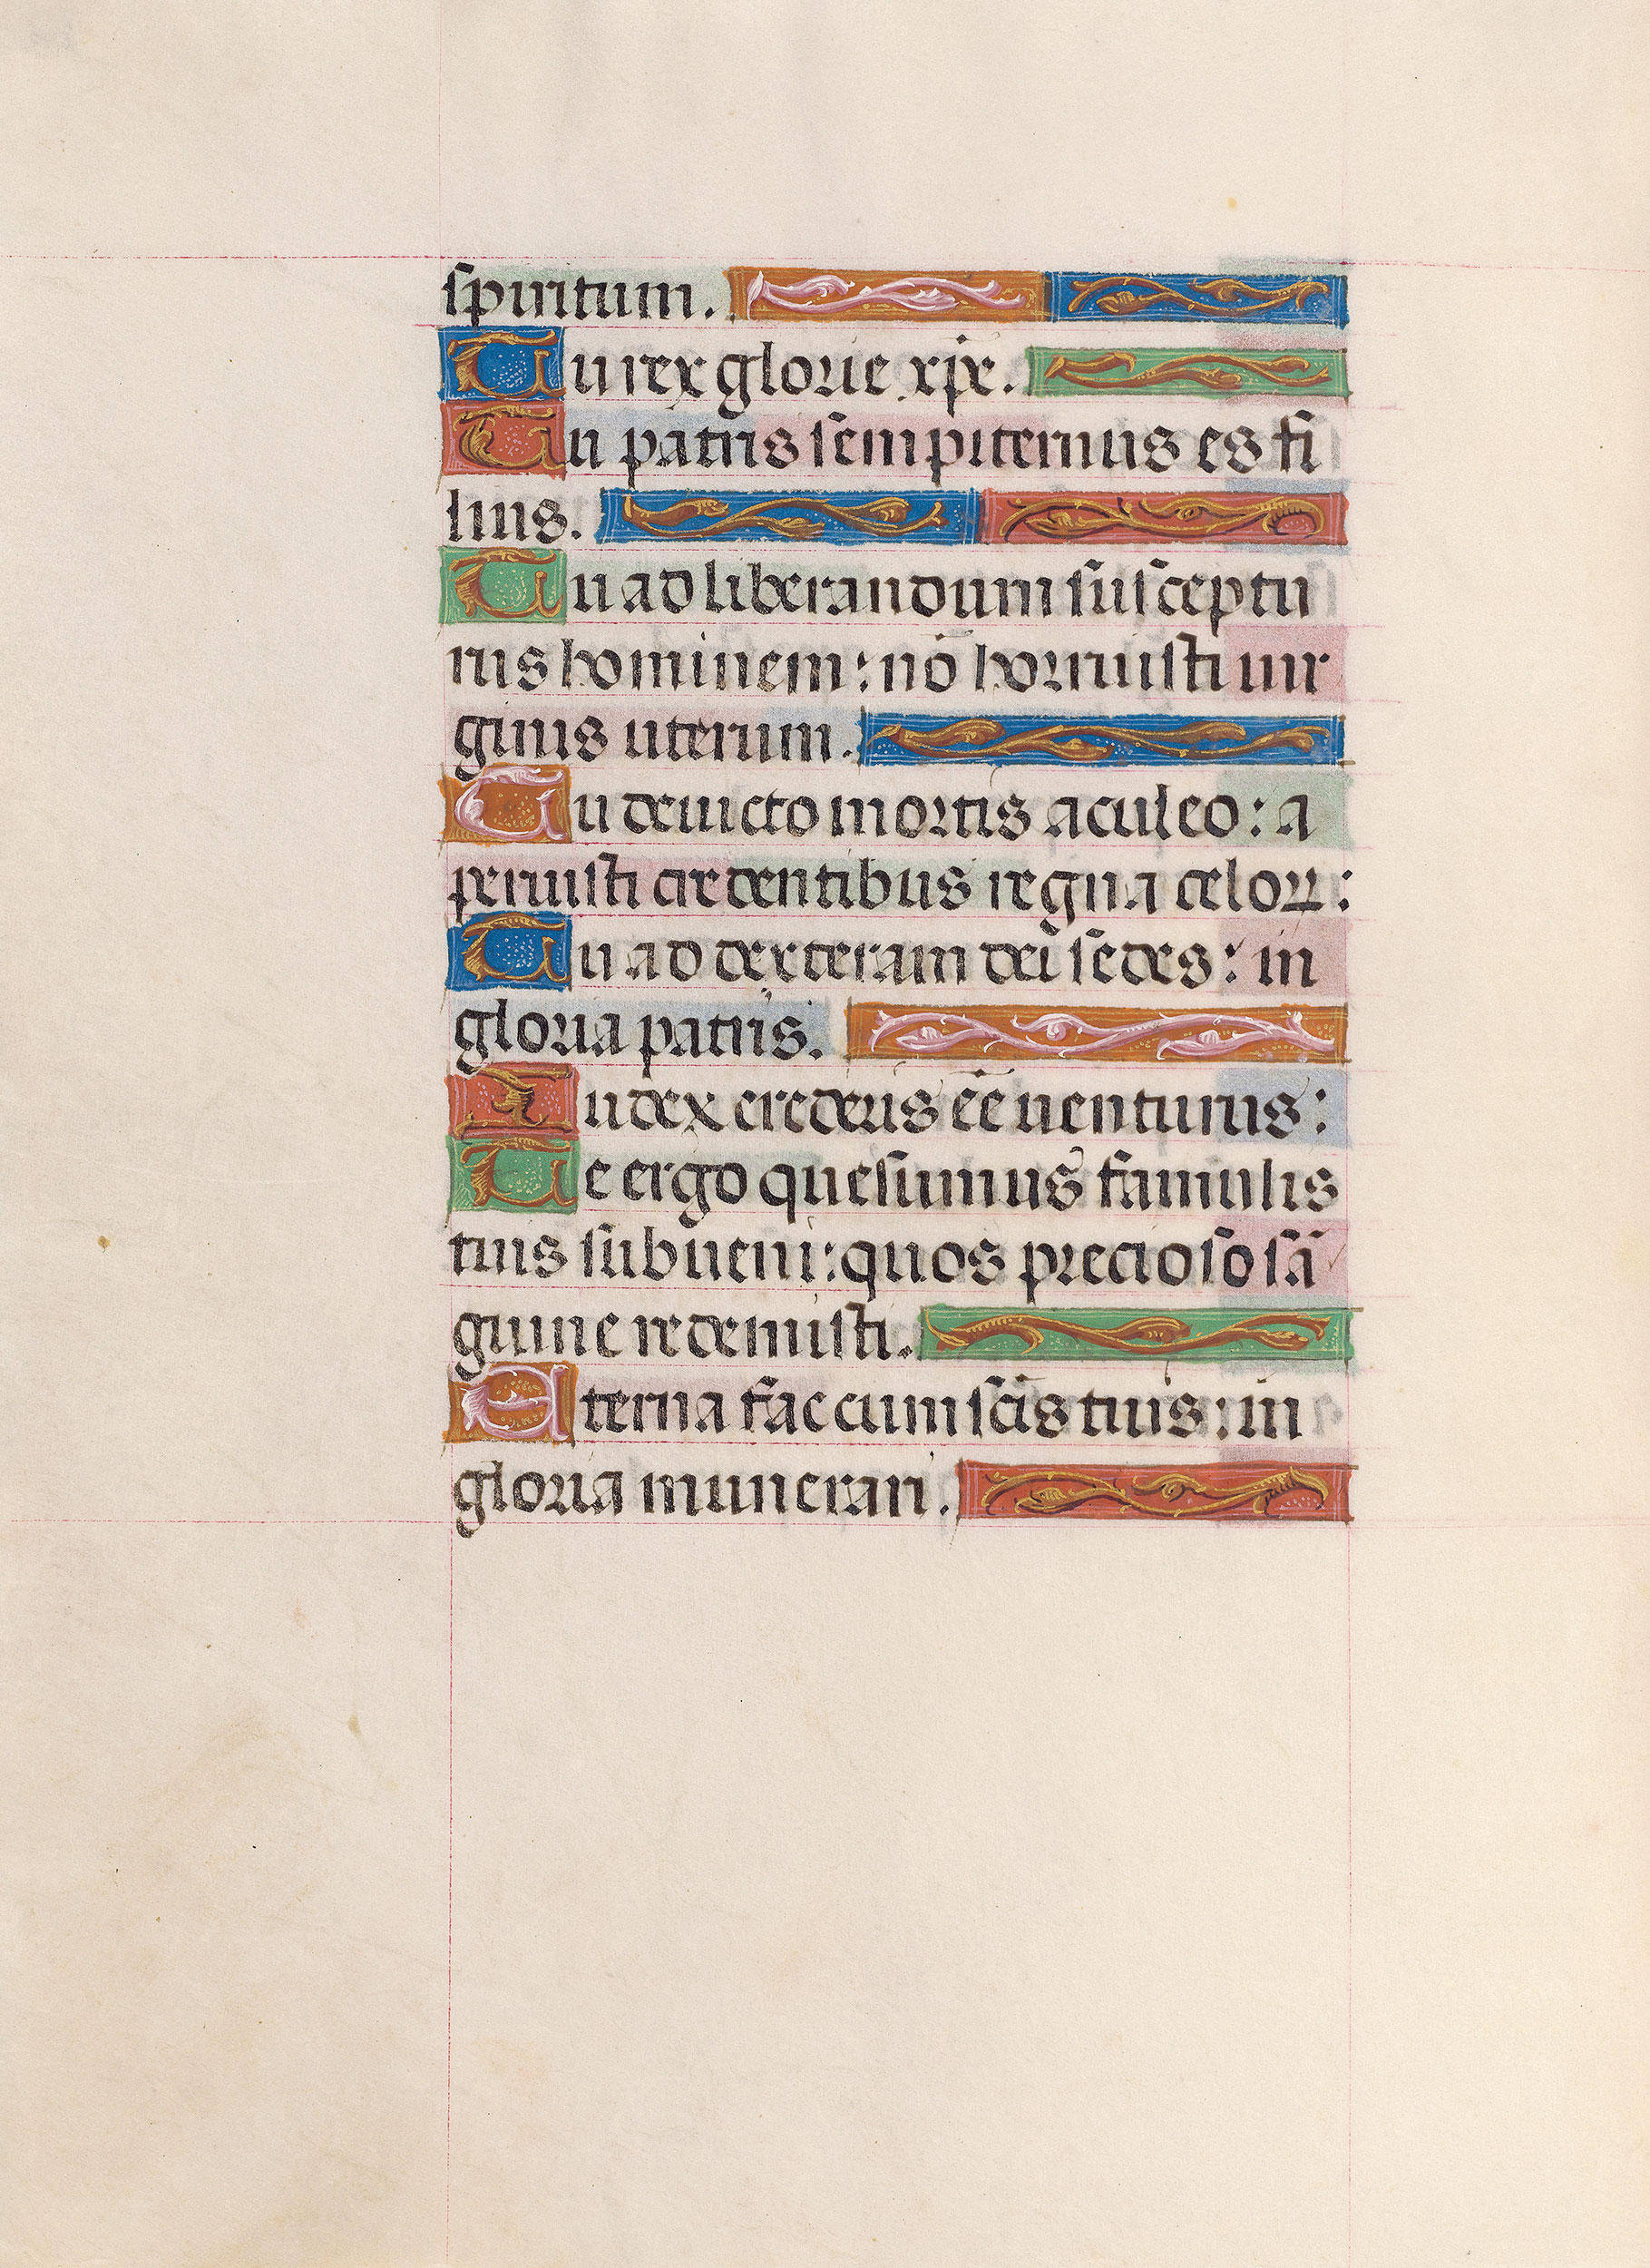 spiritum.
Tu rex glorie xp̄e.
Tu patris sempiternus es fi
lius.
Tu ad liberandum susceptu
rus hominem: nō horruisti uir
ginis uterum.
Tu deuicto mortis aculeo: a
peruisti credentibus regna celoꝝ:
Tu ad dexteram dei sedes: in
gloria patris.
Iudex crederis eē uenturus:
Te ergo quesumus famulis
tuis subueni: quos precioso sā
guine redemisti.
Eterna fac cum sc̄is tuis: in
gloria munerari.